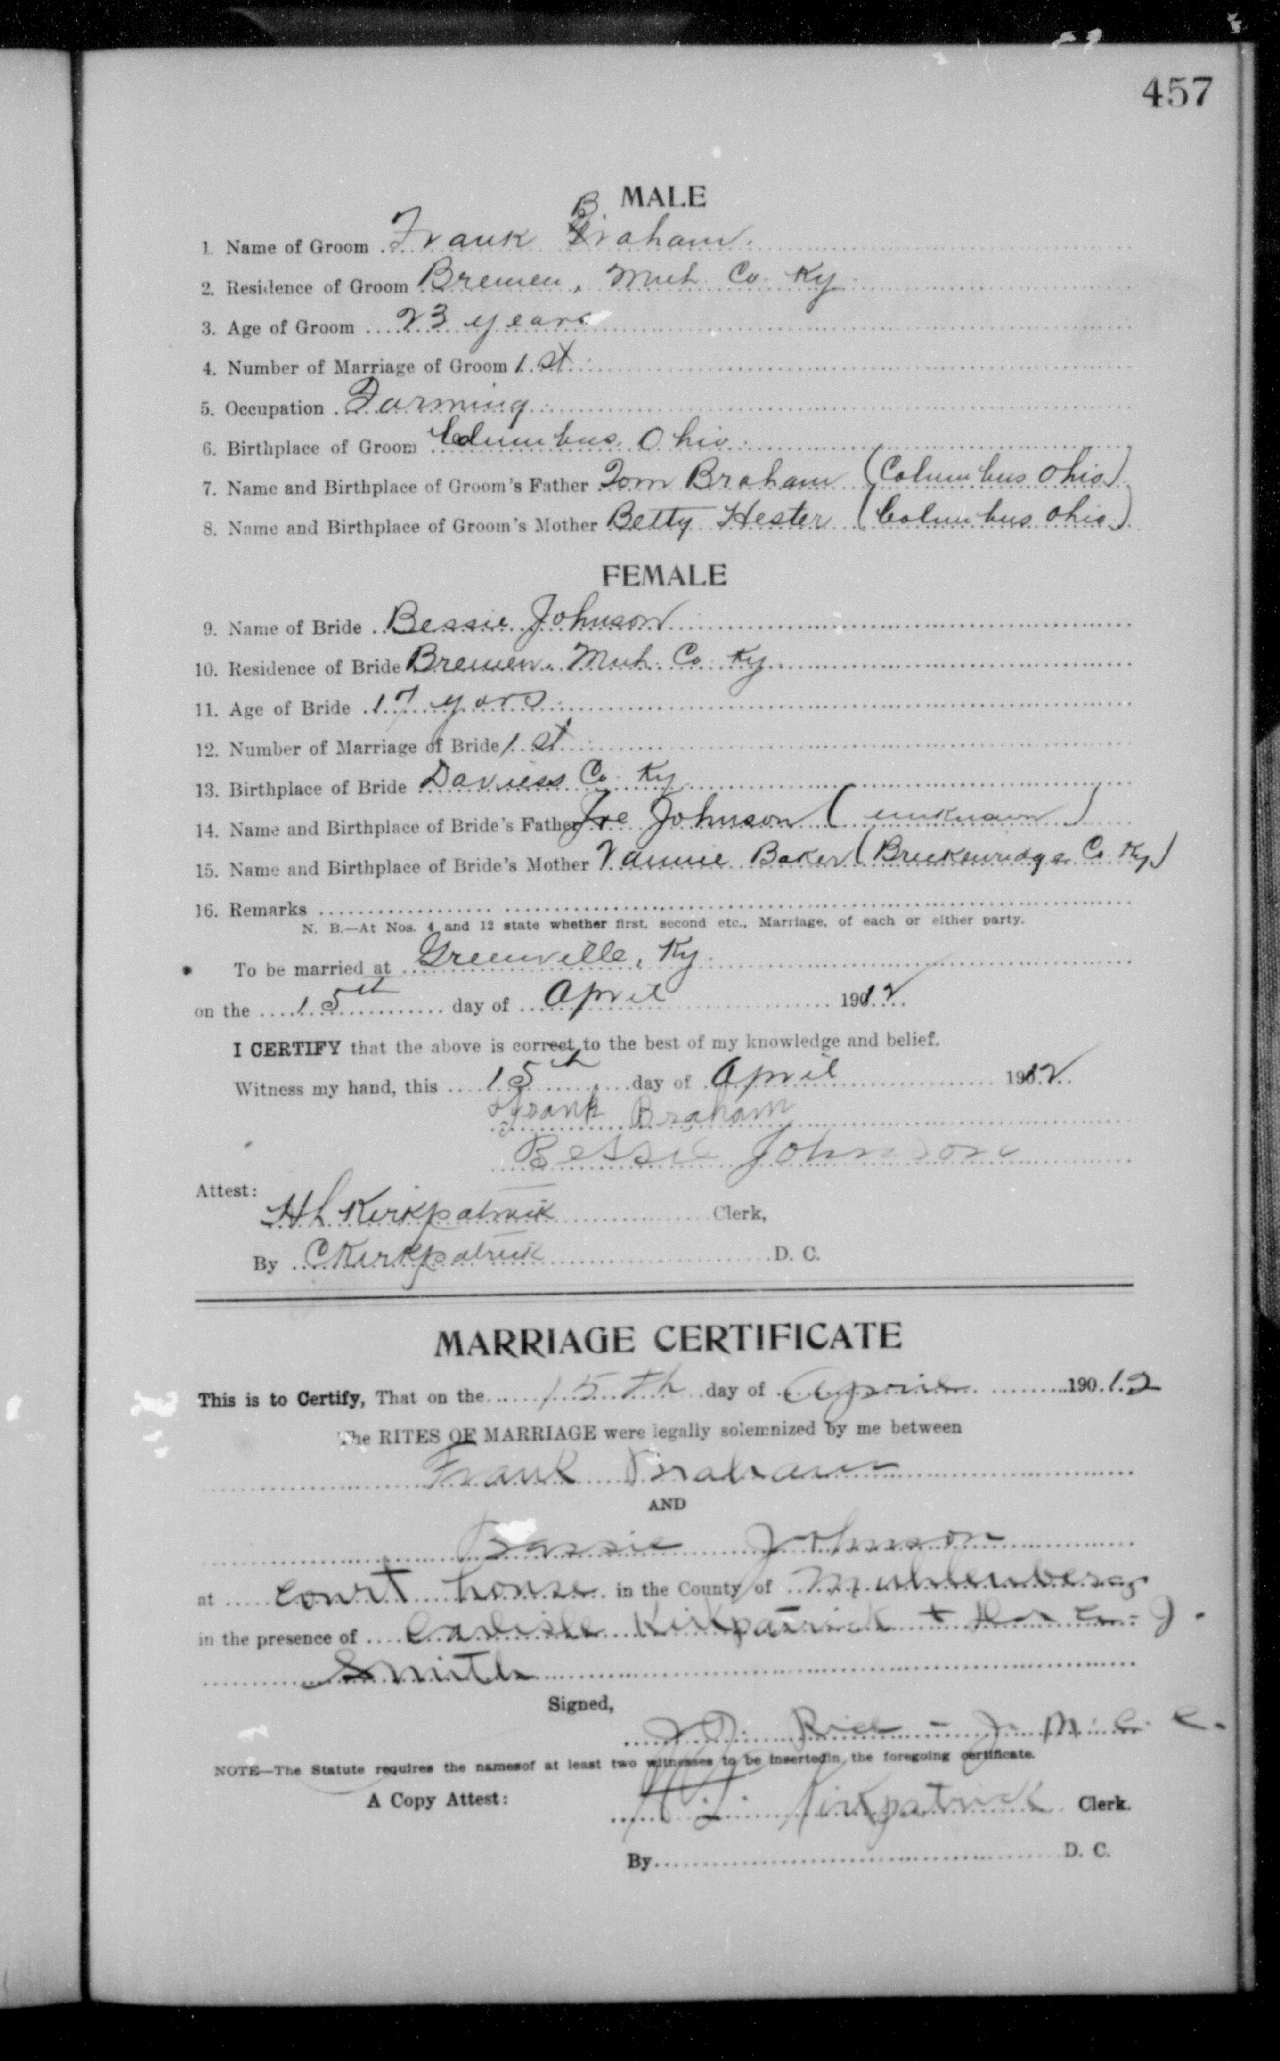 457
MALE
1. Name of Groom Frank Braham
2. Residence of Groom Bremen, Muh. Co. Ky
3. Age of Groom 23 years
4. Number of Marriage of Groom 1 st
5. Occupation Farming
6. Birthplace of Groom Columbus, Ohio
7. Name and Birthplace of Groom's Father Tom Braham (Columbus Ohio)
8. Name and Birthplace of Groom's Mother Betty Hester (Columbus Ohio)
FEMALE
9. Name of Bride Bessie Johnson
10. Residence of Bride Bremen, Muh. Co. Ky
11. Age of Bride 17 yars
12. Number of Marriage of Bride 1 st
13. Birthplace of Bride Daviess Co. Ky
14. Name and Birthplace of Bride's Father Johnson (unknown)
15. Name and Birthplace of Bride's Mother Baker (Breckenridge Co Ky)
16. Remarks
N. B.—At Nos. 4 and 12 state whether first, second etc., Marriage, of each or either party.
To be married at Greenville, Ky.
on the 15th day of April 1912
I CERTIFY that the above is correct to the best of my knowledge and belief.
Witness my hand, this 15th day of April 1912
Frank Braham
Bessie Johnson
Attest:
H L Kirkpatrick Clerk,
By C Kirkpatrick D. C.
MARRIAGE CERTIFICATE
This is to Certify, That on the 15th day of April 190 12
The RITES OF MARRIAGE were legally solemnized by me between
Frank Braham
AND
Bessie Johnson
at Court house in the County of Muhlenberg
in the presence of Carlisle Kirkpatrick + J.
Smith
Signed,
Rice - J. M. C. C.
NOTE—The Statute requires the namesof at least two witnesses to be insertedin the foregoing certificate.
A Copy Attest:
H. L. Kirkpatrick Clerk.
By D. C.